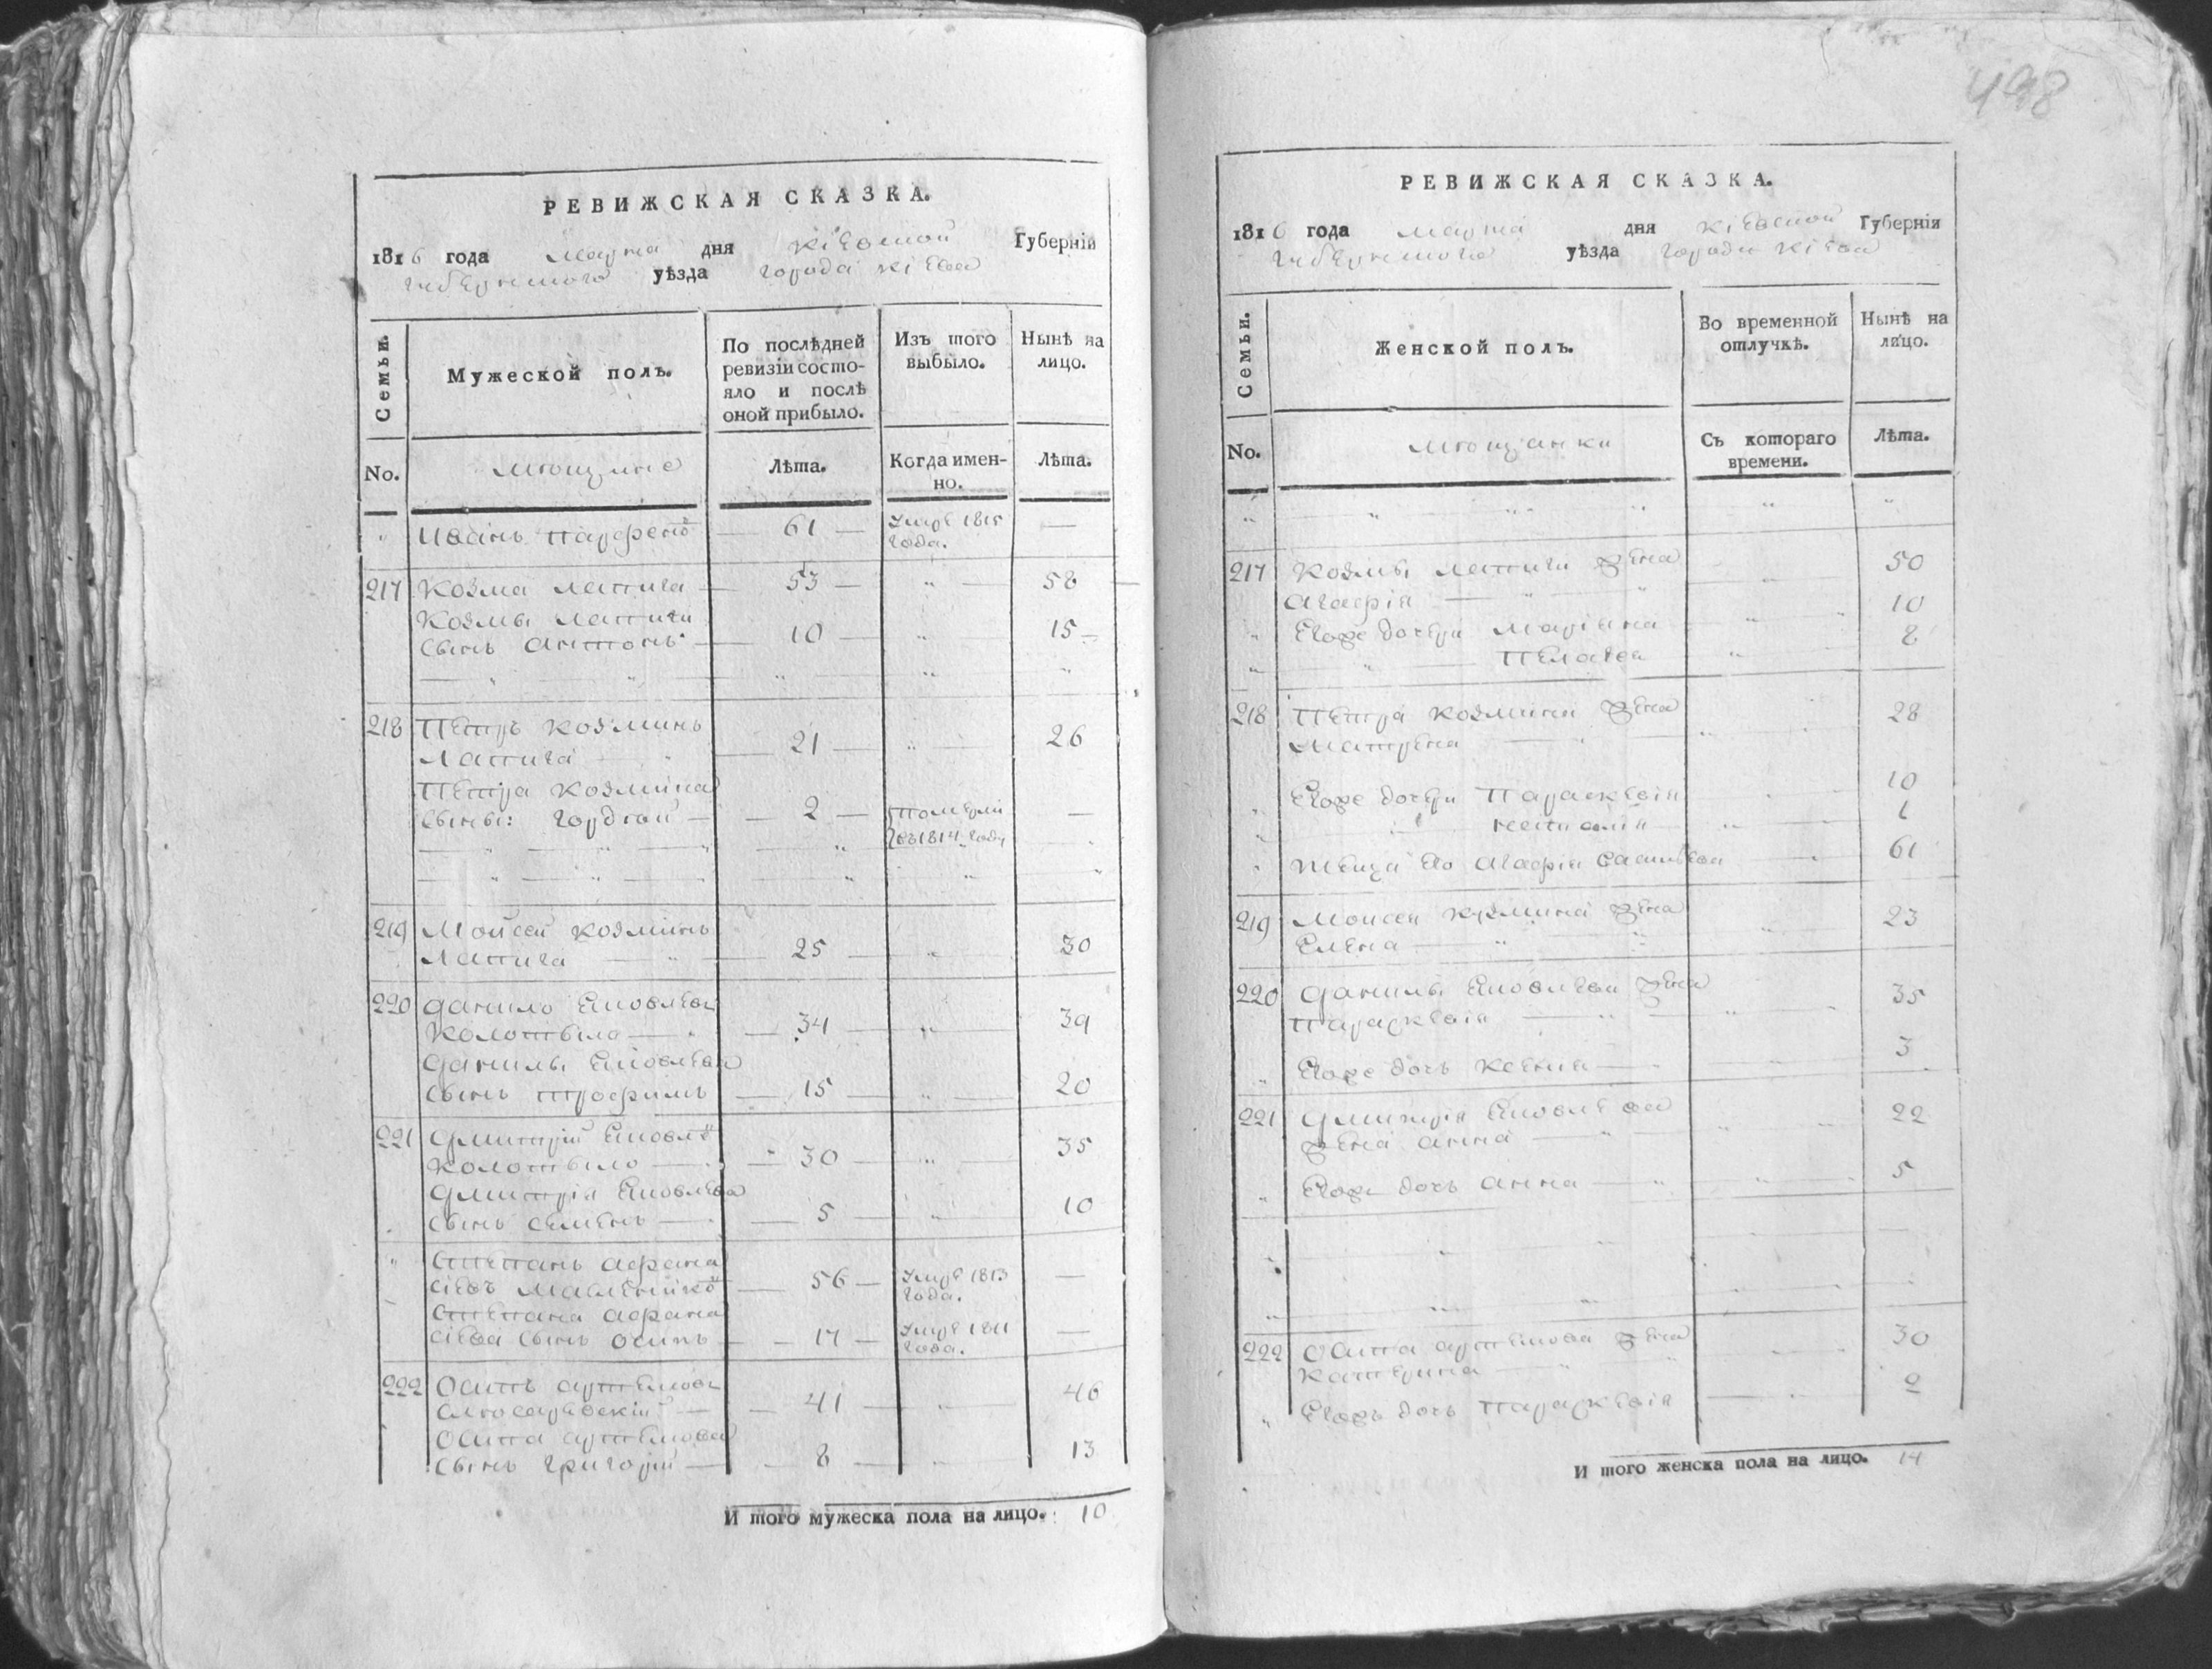 498
РЕВИЖСКАЯ СКАЗКА.
1816 года Марта дня Кіевской Губерніи
Губернскаго уѣзда города Кіева
Семьи.
Мужеской полъ.
По послѣдней ревизіи состо-
яло и послѣ
оной прибыло.
Изъ того
выбыло.
Нынѣ на
лицо.
No.
мѣщане
Лѣта.
Когда имен-
но.
Лѣта.
Иванъ Парфено 61 Умре 1815
года.
217 Козма Лапига 53 58
Козмы Лапиги
сынъ Антонъ 10 15
218 Петръ Козминъ
Лапига 21 26
Петра Козмина
сыны: Гордѣй 2 Померли
въ 1814 году
219 Мойсей Козминъ
Лапига 25 30
220 Данило Яковлевъ
Колотыло 34 39
Данилы Яковлева
сынъ Трофимъ 15 20
221 Дмитрій Яковле
Колотыло 30 35
Дмитрія Яковлева
сынъ Семенъ 5 10
Степанъ Афана
сіевъ 56 Умре 1813
года.
Степана Афана
сіева сынъ Осипъ 17 Умре 1811
года.
222 Осипъ Артемовъ
41 46
Осипа Артемова
сынъ Григорій 8 13
И того мужеска пола на лицо. 10
РЕВИЖСКАЯ СКАЗКА.
1816 года Марта дня Кіевской Губерніи
Губернскаго уѣзда города Кіева
Семьи.
Женской полъ.
Во временной
отлучкѣ.
Нынѣ на
лицо.
No.
мѣщанки
Съ котораго
времени.
Лѣта.
217 Козмы Лапиги жена
Агафія 50
Егоже дочери Маріяна 10
Пелагея 8
218 Петра Козмина жена
Матрена 28
Егоже дочери Параскевія 10
Наталія
теща его Агафія 61
219 Моисея Козмина жена
Елена 23
220 Данилы Яковлева жена
Параскевія 35
Егоже дочь Ксенія 3
221 Дмитрія Яковлева
жена Анна 22
Егоже дочь Анна 5
222 Осипа Артемова жена
Катерина 30
Егожъ дочь Параскевія 2
И того женска пола на лицо. 14